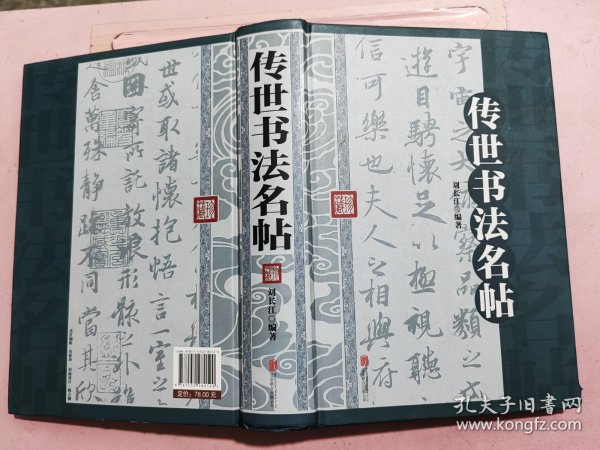 传世书法名帖
刘长江 编著
宇宙之大
品類之
遊目騁懷足以極視聽
信可樂也夫人之相與俯
传世书法名帖
刘长江 编著
世或取諸懷抱悟言一室之
因寄所託放浪形骸之外雖
舍萬殊靜躁不同當其欣
定价：78.00元
孔夫子旧书网
www.kongfz.com